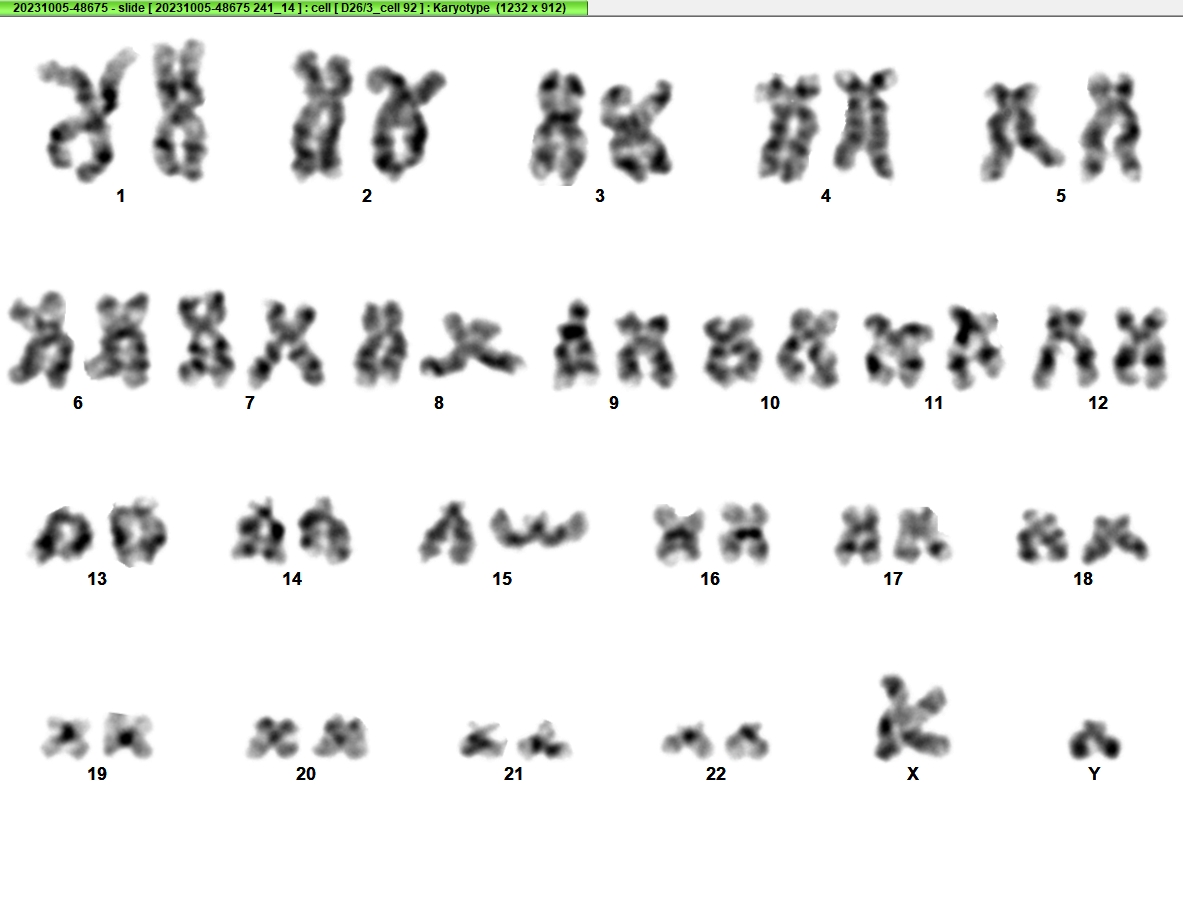 20231005-48675 - slide [ 20231005-48675 241_14 ] : cell [ D26/3_cell 92 ] : Karyotype (1232 x 912)
1 2 3 4 5
6 7 8 9 10 11 12
13 14 15 16 17 18
19 20 21 22 X Y